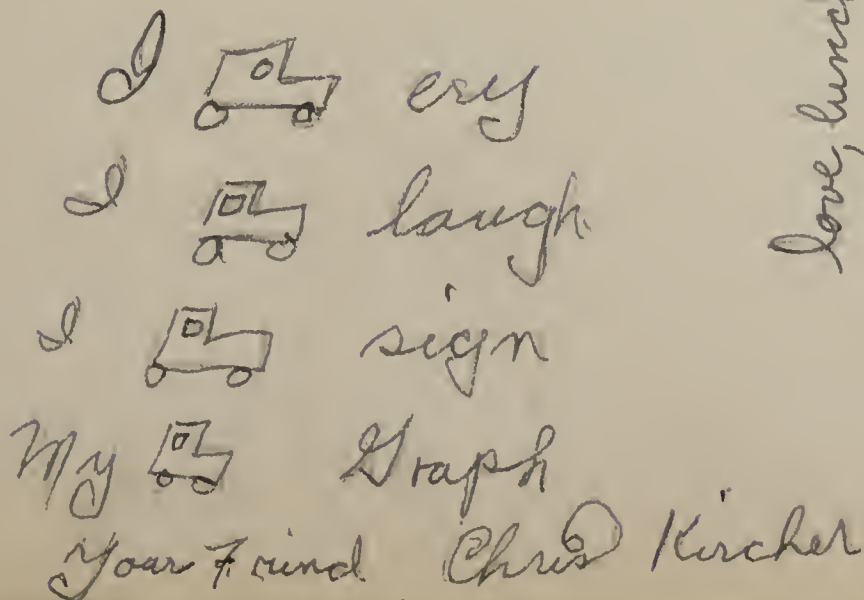 I cry
I laugh
I sign
My Graph
Your Friend Chris Kircher
love,